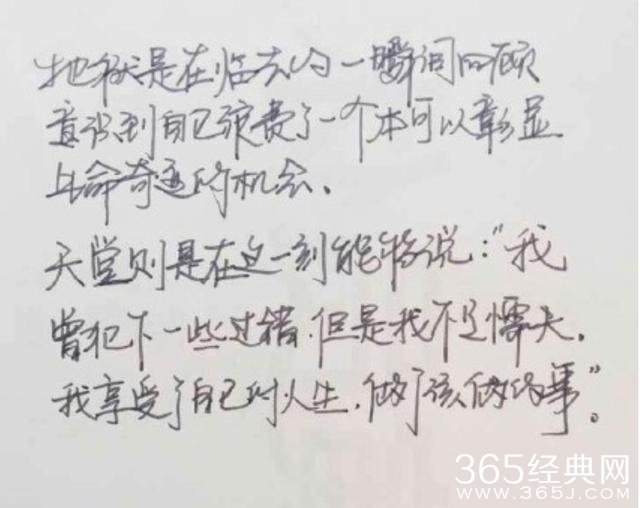 地狱是在临去的一瞬间回顾
意识到自己浪费了一个本可以彰显
生命奇迹的机会。
天堂则是在这一刻能够说:“我
曾犯下一些过错.但是我不是懦夫.
我享受了自己的人生.做了该做的事”。
365经典网
WWW.365J.COM